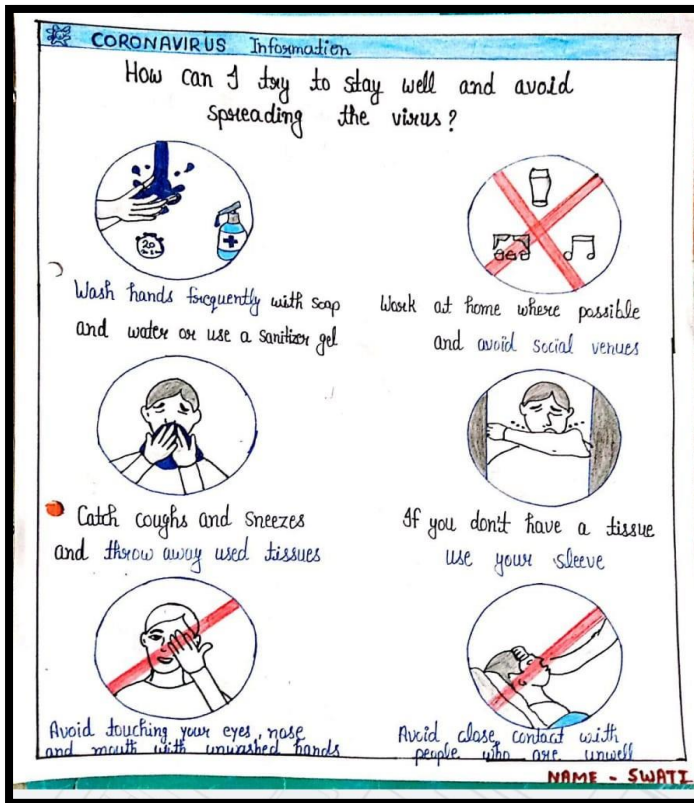 CORONAVIRUS Information
How can I try to stay well and avoid
spreading the virus?
20
Wash hands frequently with soap
and water or use a sanitizer gel
Work at home where possible
and avoid social venues
Catch coughs and sneezes
and throw away used tissues
If you don't have a tissue
use your sleeve
Avoid touching your eyes, nose
and mouth with unwashed hands
Avoid close contact with
people who are unwell
NAME - SWATI